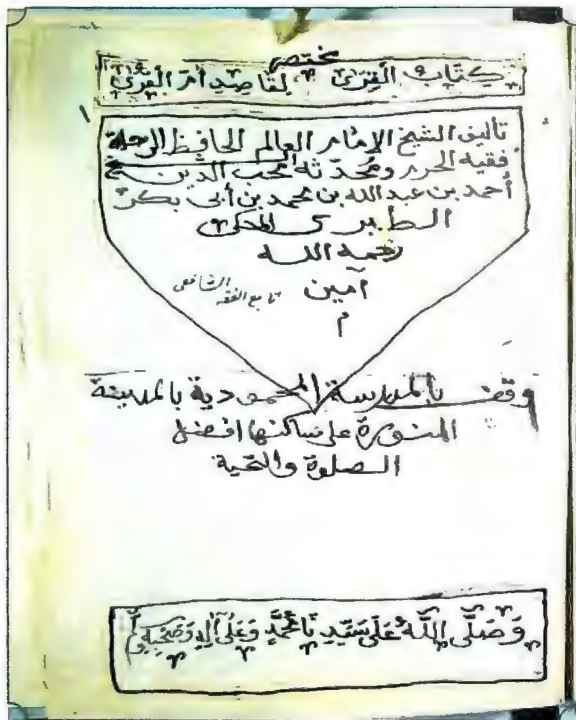 مختصر
كتاب القرى لقاصد أم القرى
تأليف الشيخ الإمام العالم الحافظ الرحلة
فقيه الحرم ومحدثه محب الدين
أحمد بن عبد الله بن محمد بن أبي بكر
الطبري المكي
رحمه الله
آمين
تابع الفقه الشافعي
م
وقف بالمدرسة المحمودية بالمدينة
المنورة على ساكنها افضل
الصلوة والتحية
وَصَلَّى اللَّهُ عَلَى سَيِّدِنَا مُحَمَّدٍ وَعَلَى آلِهِ وَصَحْبِهِ